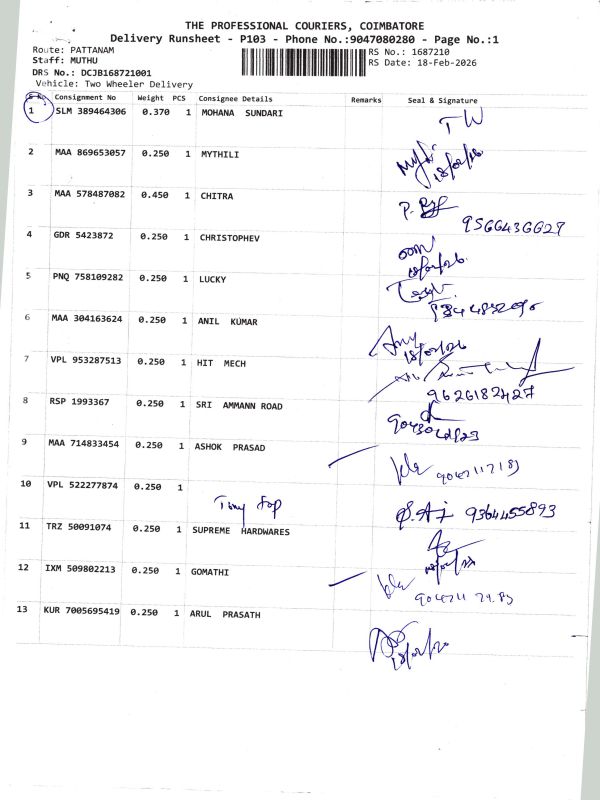 THE PROFESSIONAL COURIERS, COIMBATORE
Delivery Runsheet - P103 - Phone No.:9047080280 - Page No.:1
Route: PATTANAM
RS No.: 1687210
Staff: MUTHU
RS Date: 18-Feb-2026
DRS No.: DCJB168721001
Vehicle: Two Wheeler Delivery
S No Consignment No Weight PCS Consignee Details Remarks Seal & Signature
1 SLM 389464306 0.370 1 MOHANA SUNDARI
TW
2 MAA 869653057 0.250 1 MYTHILI
18/02/26
3 MAA 578487082 0.450 1 CHITRA
9566436629
4 GDR 5423872 0.250 1 CHRISTOPHEV
18/02/26
5 PNQ 758109282 0.250 1 LUCKY
6 MAA 304163624 0.250 1 ANIL KUMAR
18/02/26
7 VPL 953287513 0.250 1 HIT MECH
9626182427
8 RSP 1993367 0.250 1 SRI AMMANN ROAD
9 MAA 714833454 0.250 1 ASHOK PRASAD
10 VPL 522277874 0.250 1
Tiny Top
9364455893
11 TRZ 50091074 0.250 1 SUPREME HARDWARES
12 IXM 509802213 0.250 1 GOMATHI
13 KUR 7005695419 0.250 1 ARUL PRASATH